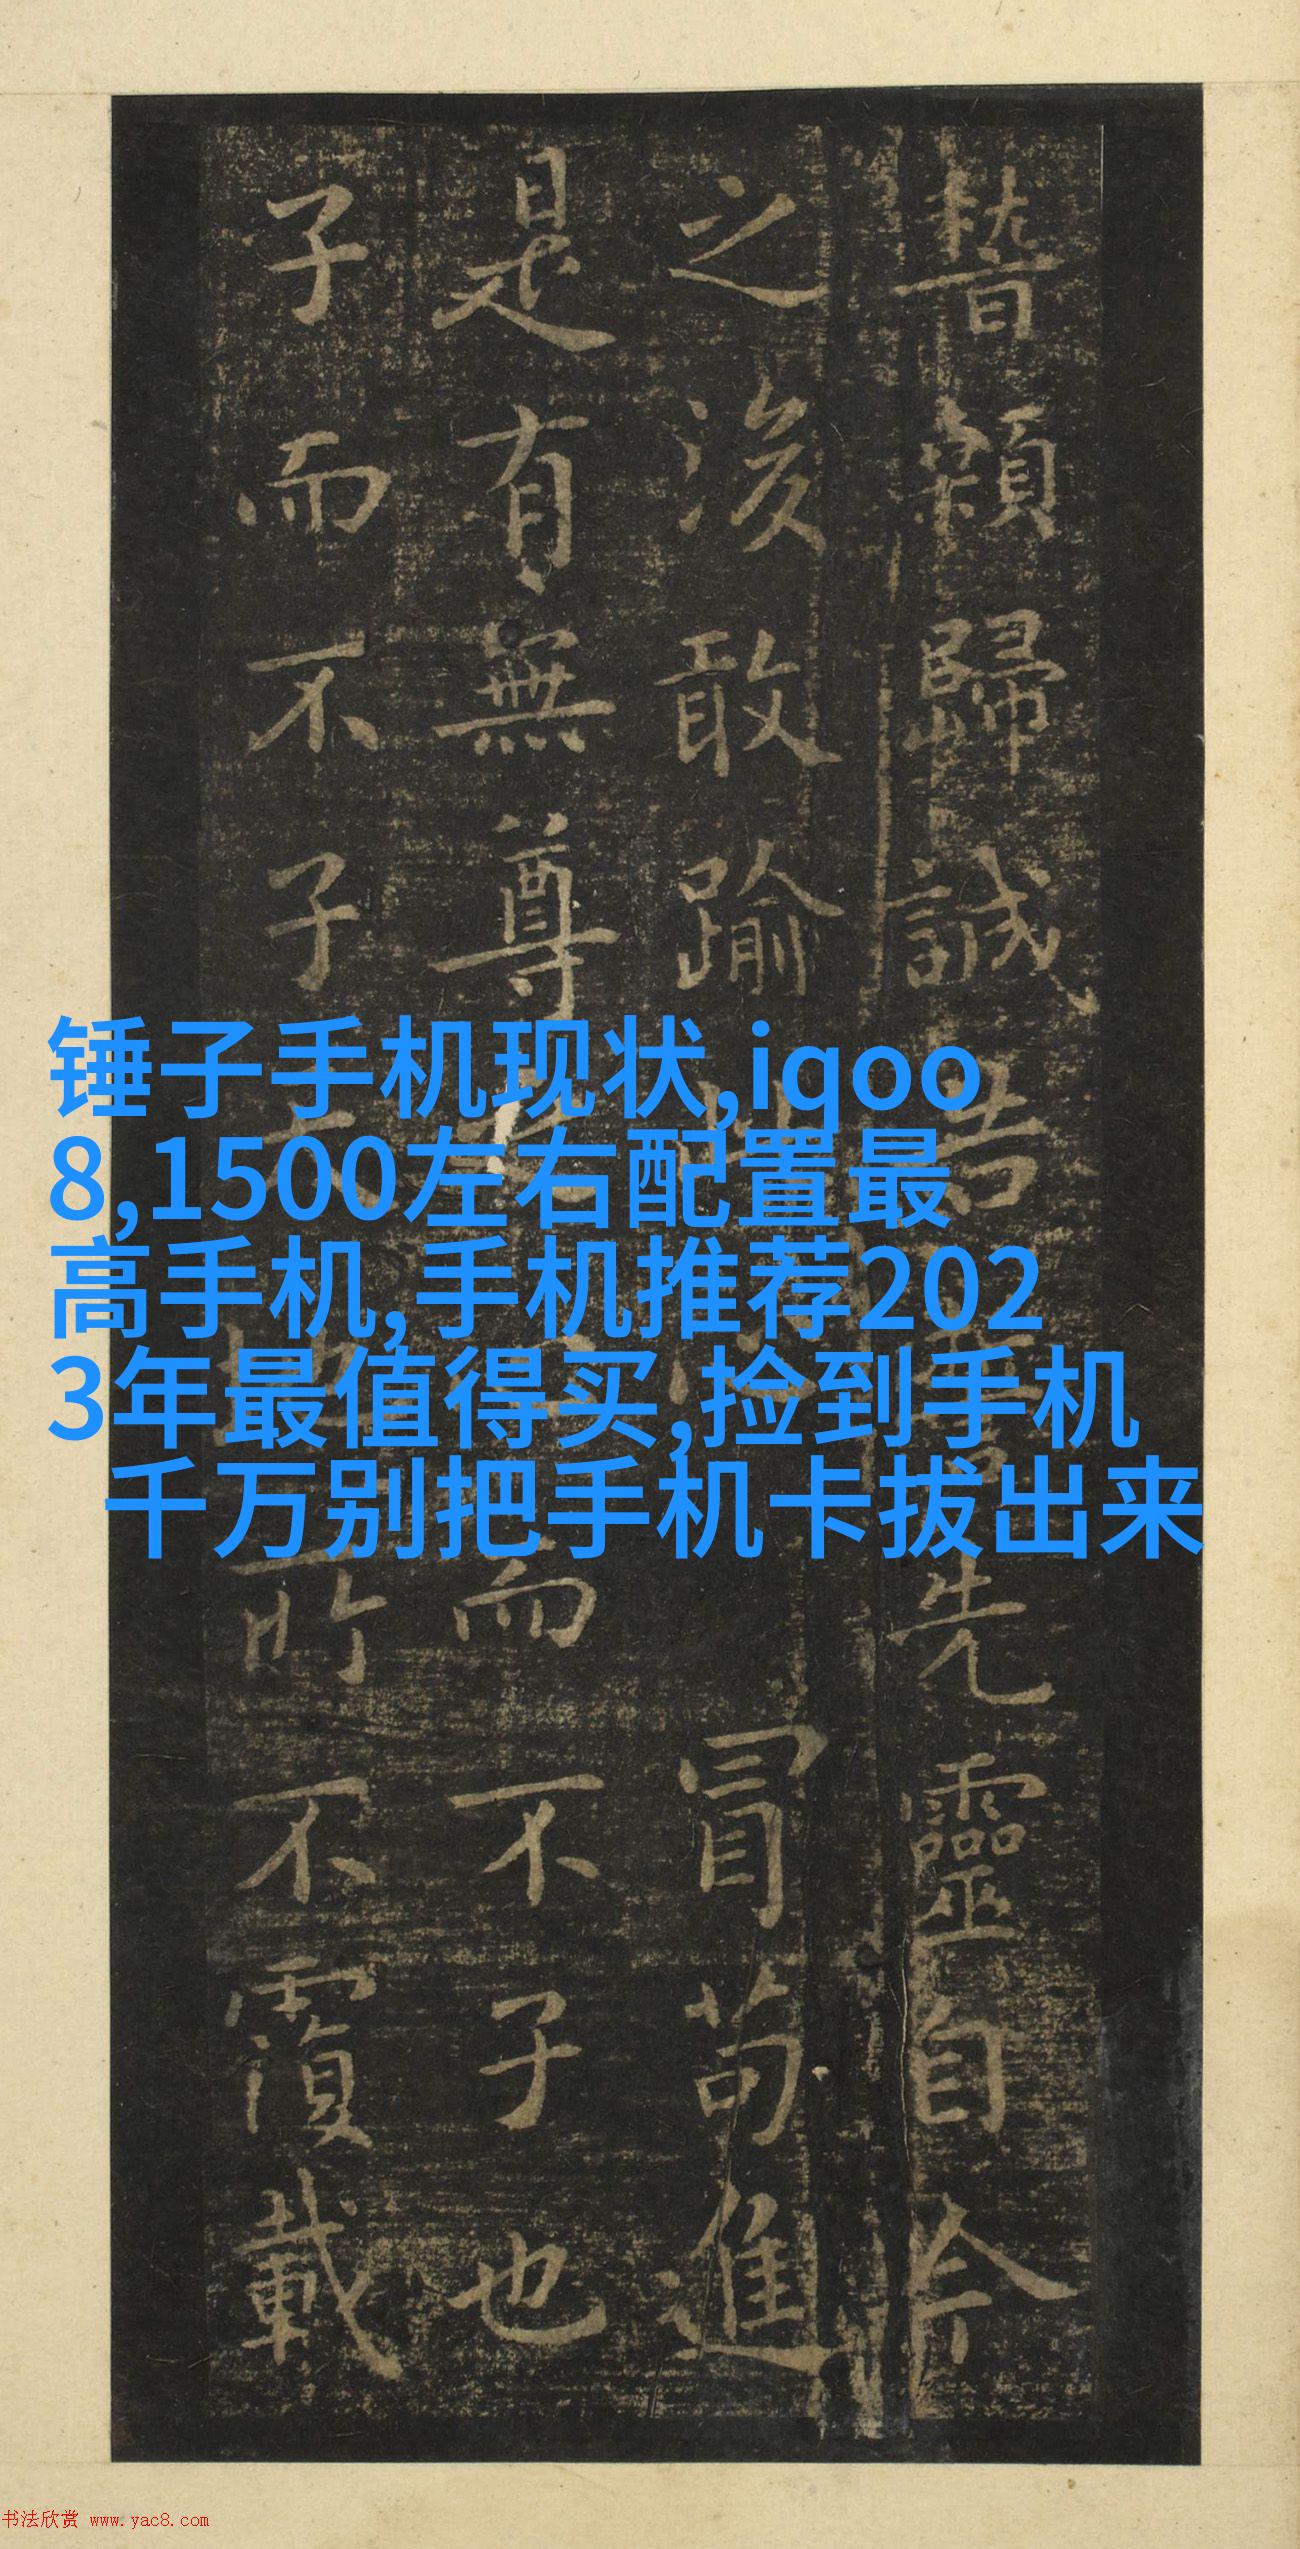 稽顙歸誠告先靈自今
之後敢踰冒苟進
是有無尊而不子也
子而不子所不覆載
锤子手机现状,iqoo
8,1500左右配置最
高手机,手机推荐202
3年最值得买,捡到手机
千万别把手机卡拔出来
书法欣赏 www.yac8.com